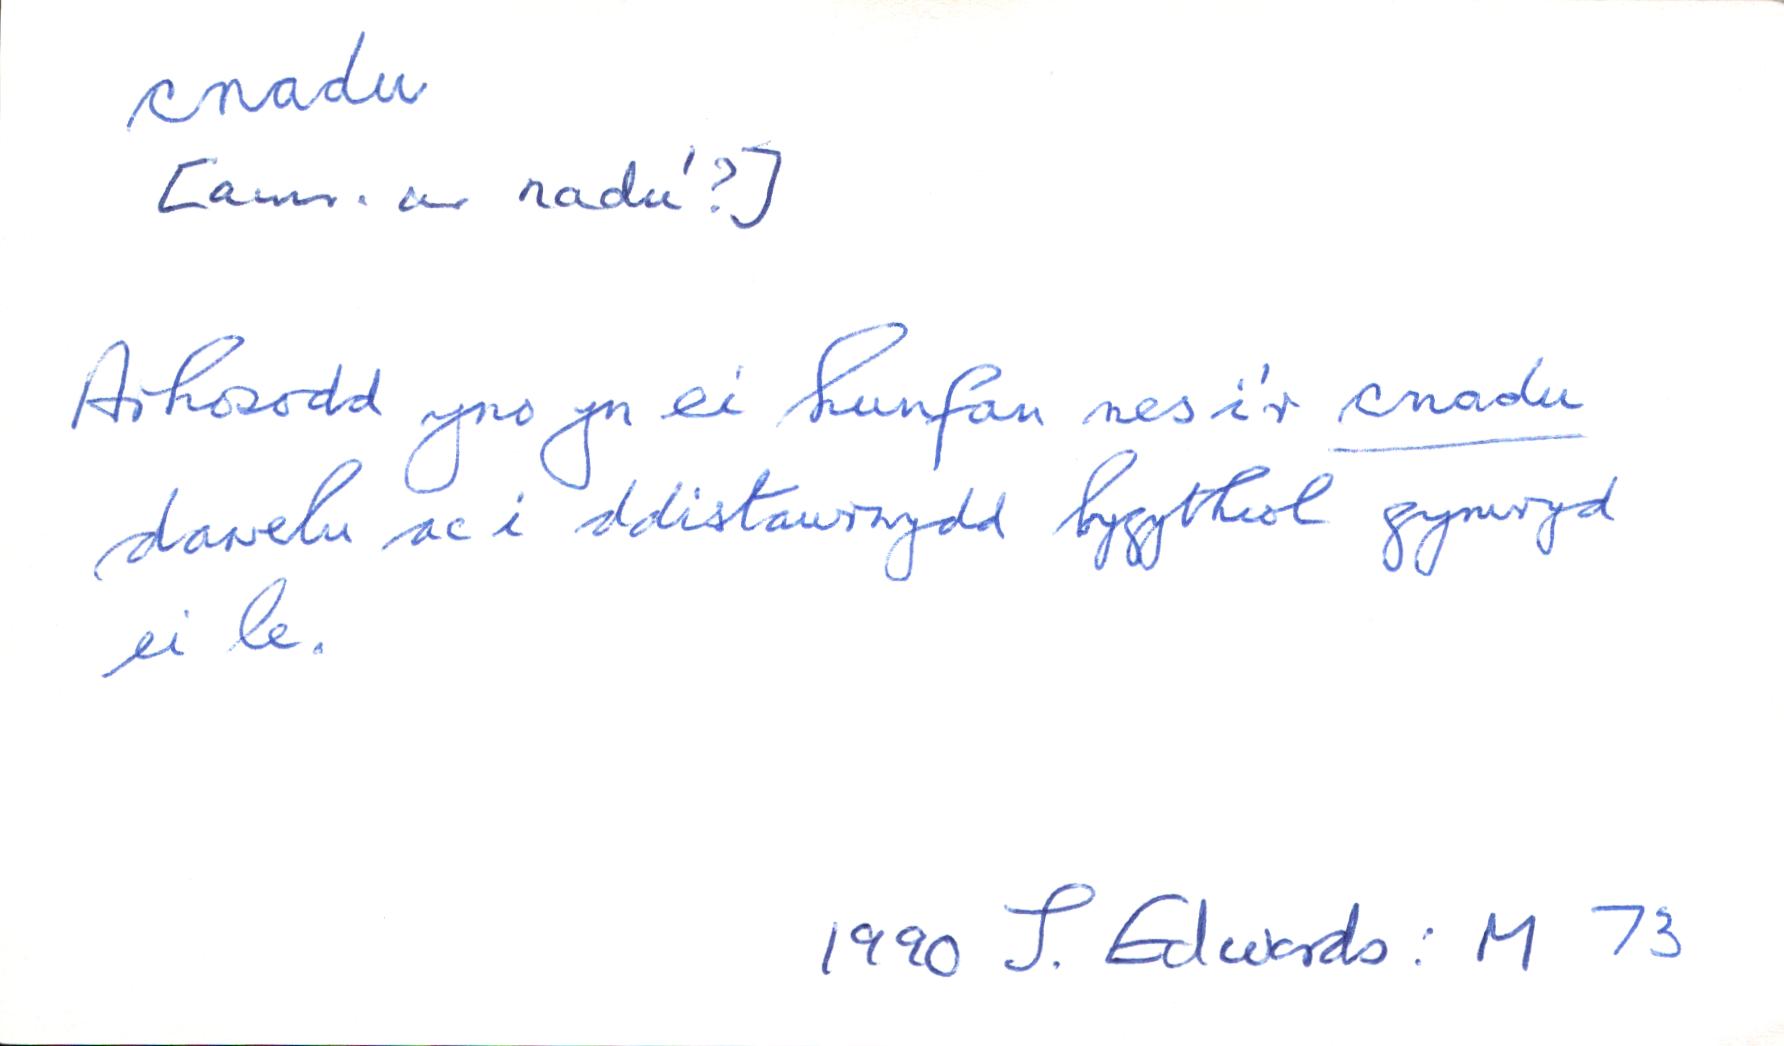 cnadu
[amr. ar nadu'?]
Arhosodd yno yn ei hunfan nes i'r cnadu
dawelu ac i ddistawrwydd bygythiol gymryd
ei le.
1990 J. Edwards: M 73